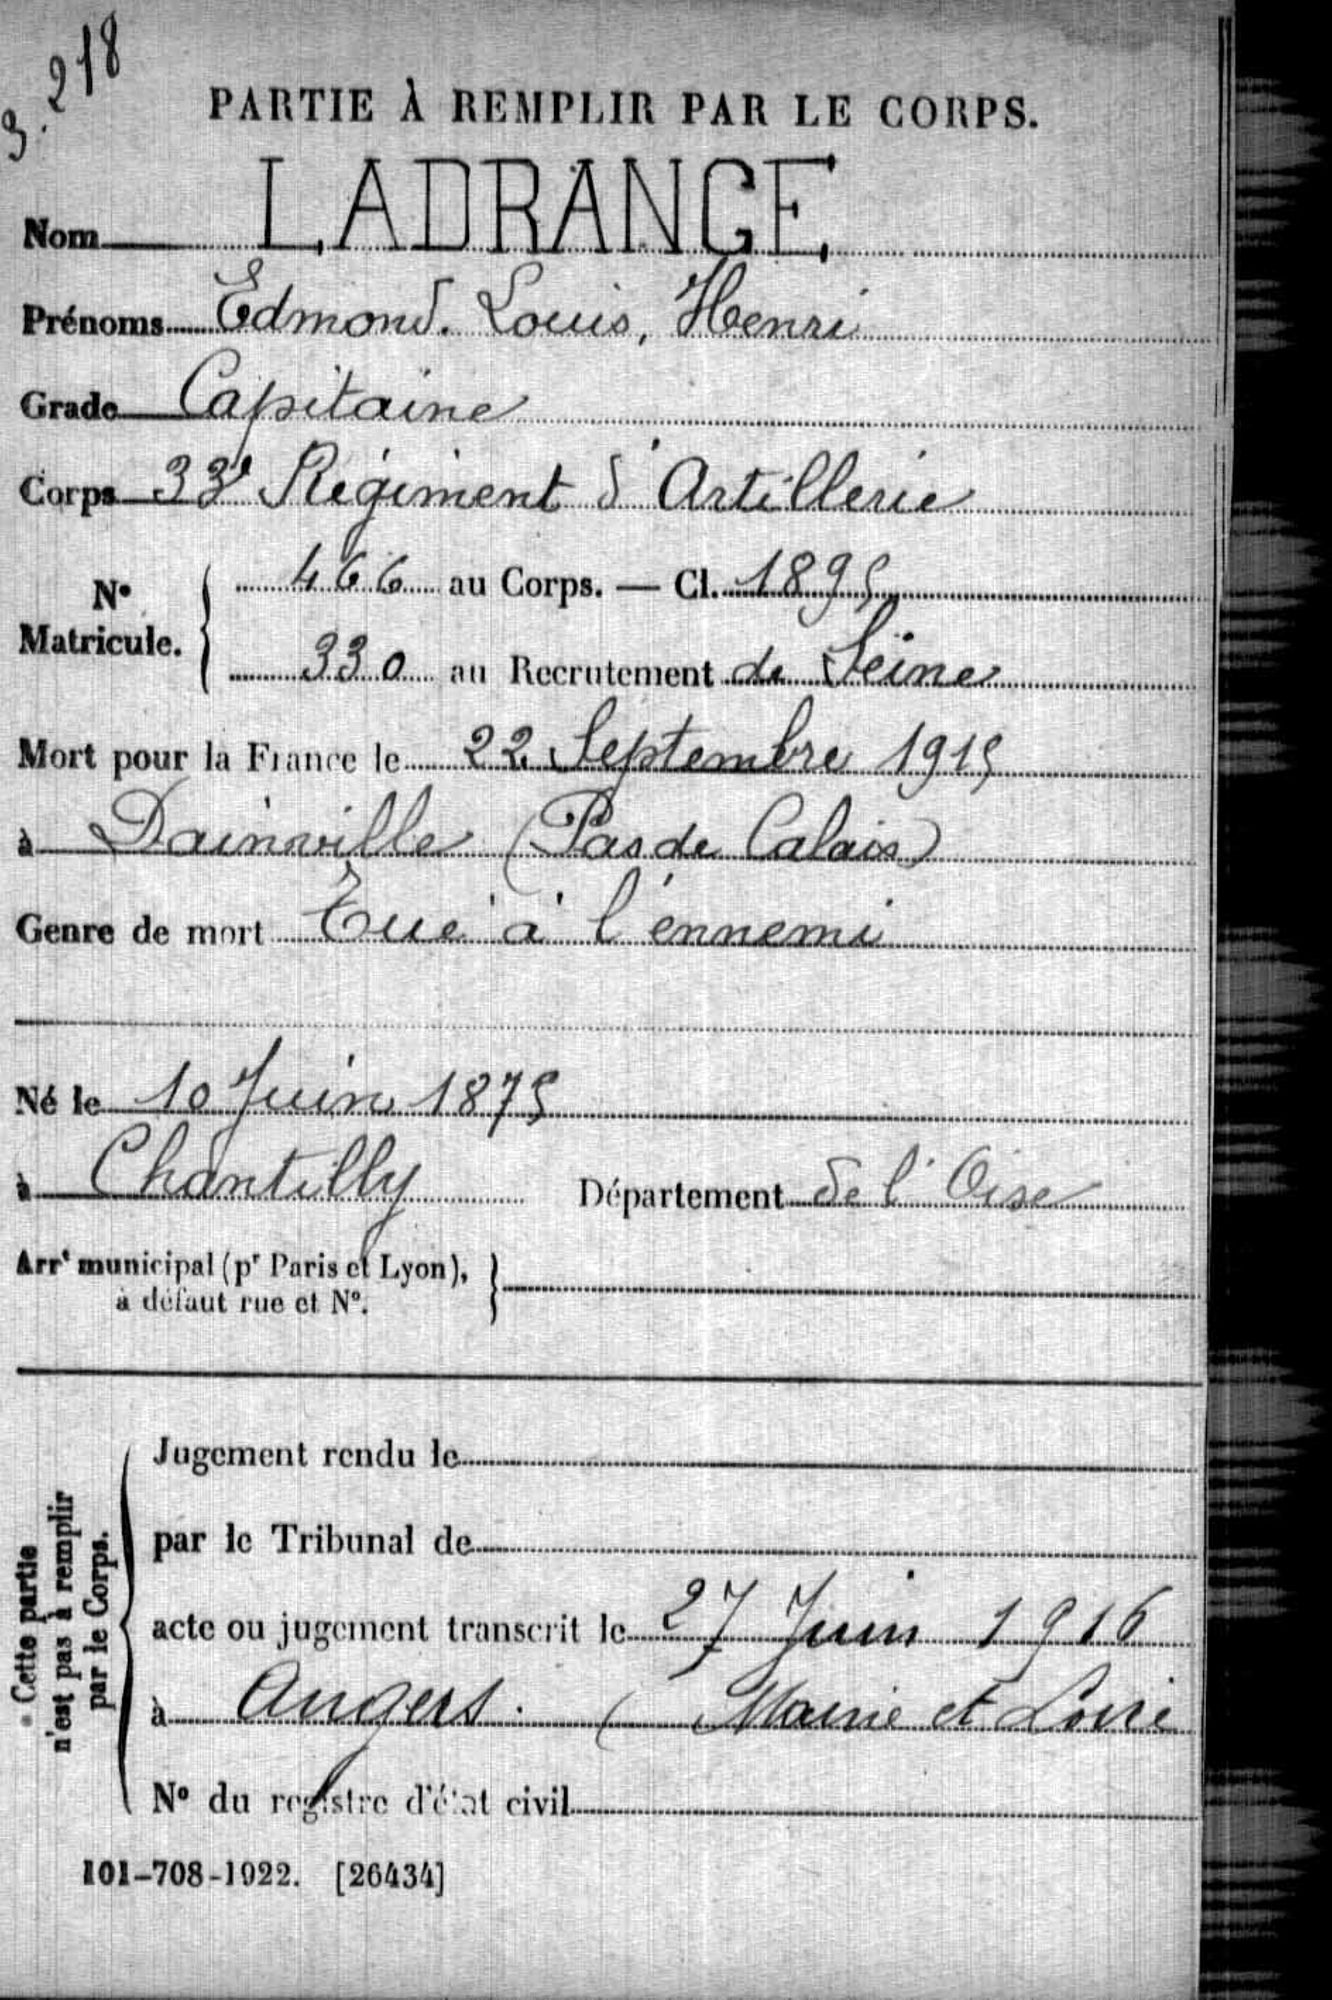 3. 218
PARTIE À REMPLIR PAR LE CORPS.
Nom LADRANGE
Prénoms Edmond. Louis, Henri
Grade Capitaine
Corps 33e Régiment d'Artillerie
N° Matricule. { 466 au Corps. — Cl. 1895
330 au Recrutement de Seine
Mort pour la France le 22 Septembre 1915
à Dainville (Pas de Calais)
Genre de mort Tué à l'ennemi
Né le 10 Juin 1875
à Chantilly Département de l'Oise
Arrt municipal (pr Paris et Lyon), }
à défaut rue et N°.
Cette partie
n'est pas à remplir
par le Corps.
Jugement rendu le
par le Tribunal de
acte ou jugement transcrit le 27 Juin 1916
à Angers. (Maine et Loire
N° du registre d'état civil
101-708-1922. [26434]